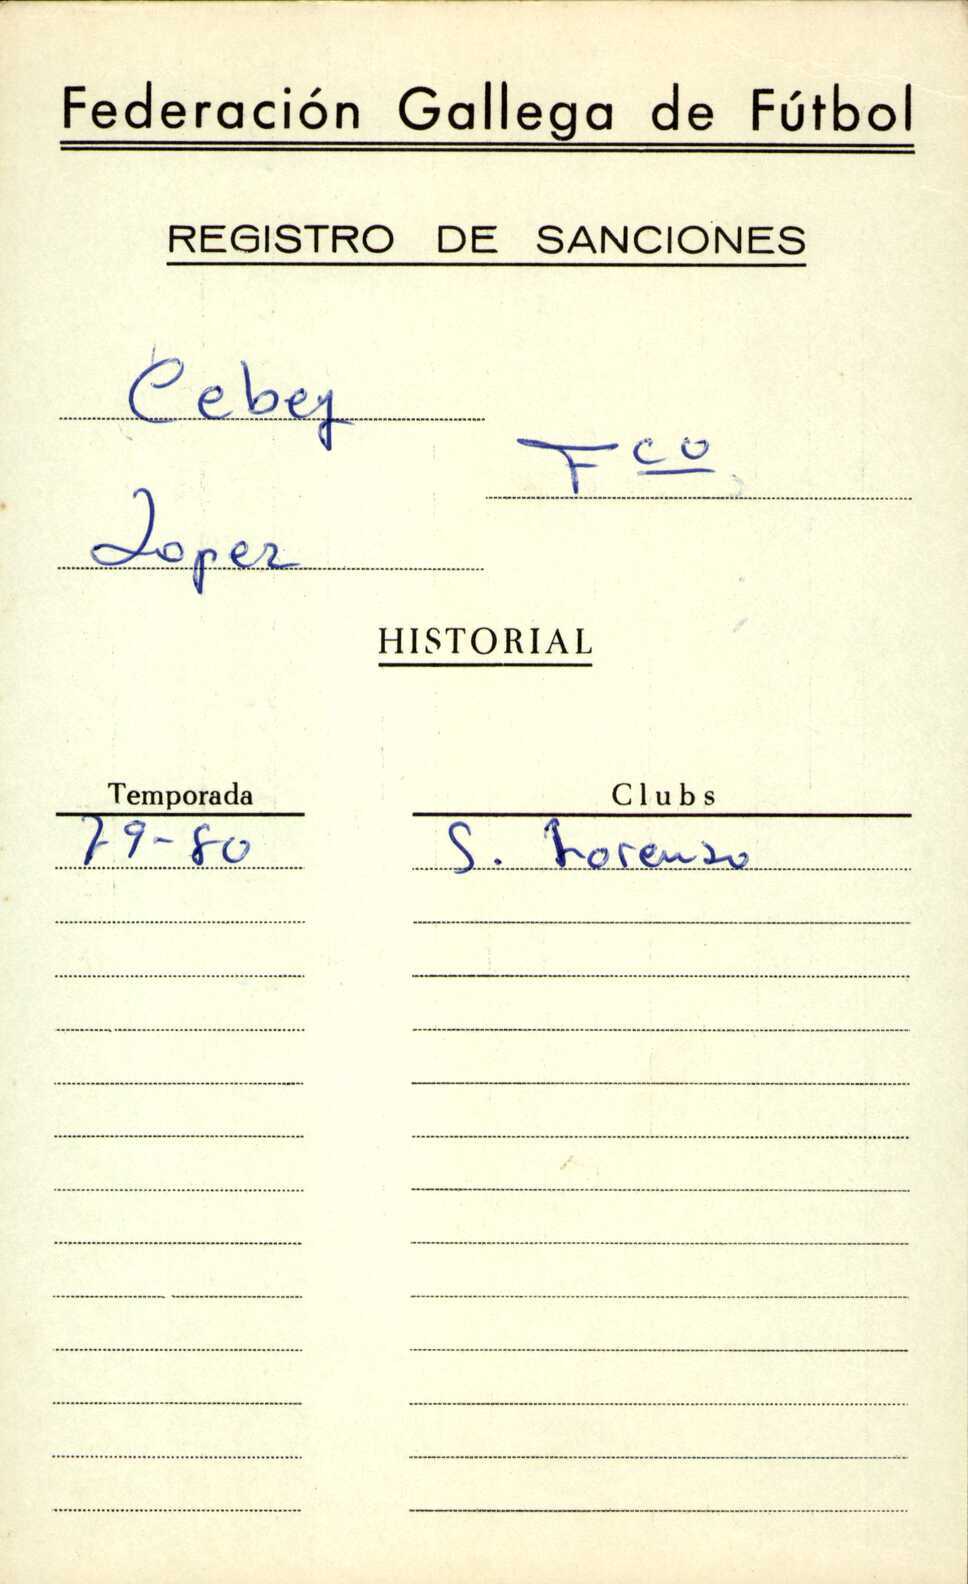 Federación Gallega de Fútbol
REGISTRO DE SANCIONES
Cebey
Fco
Lopez
HISTORIAL
Temporada Clubs
79-80 S. Lorenzo